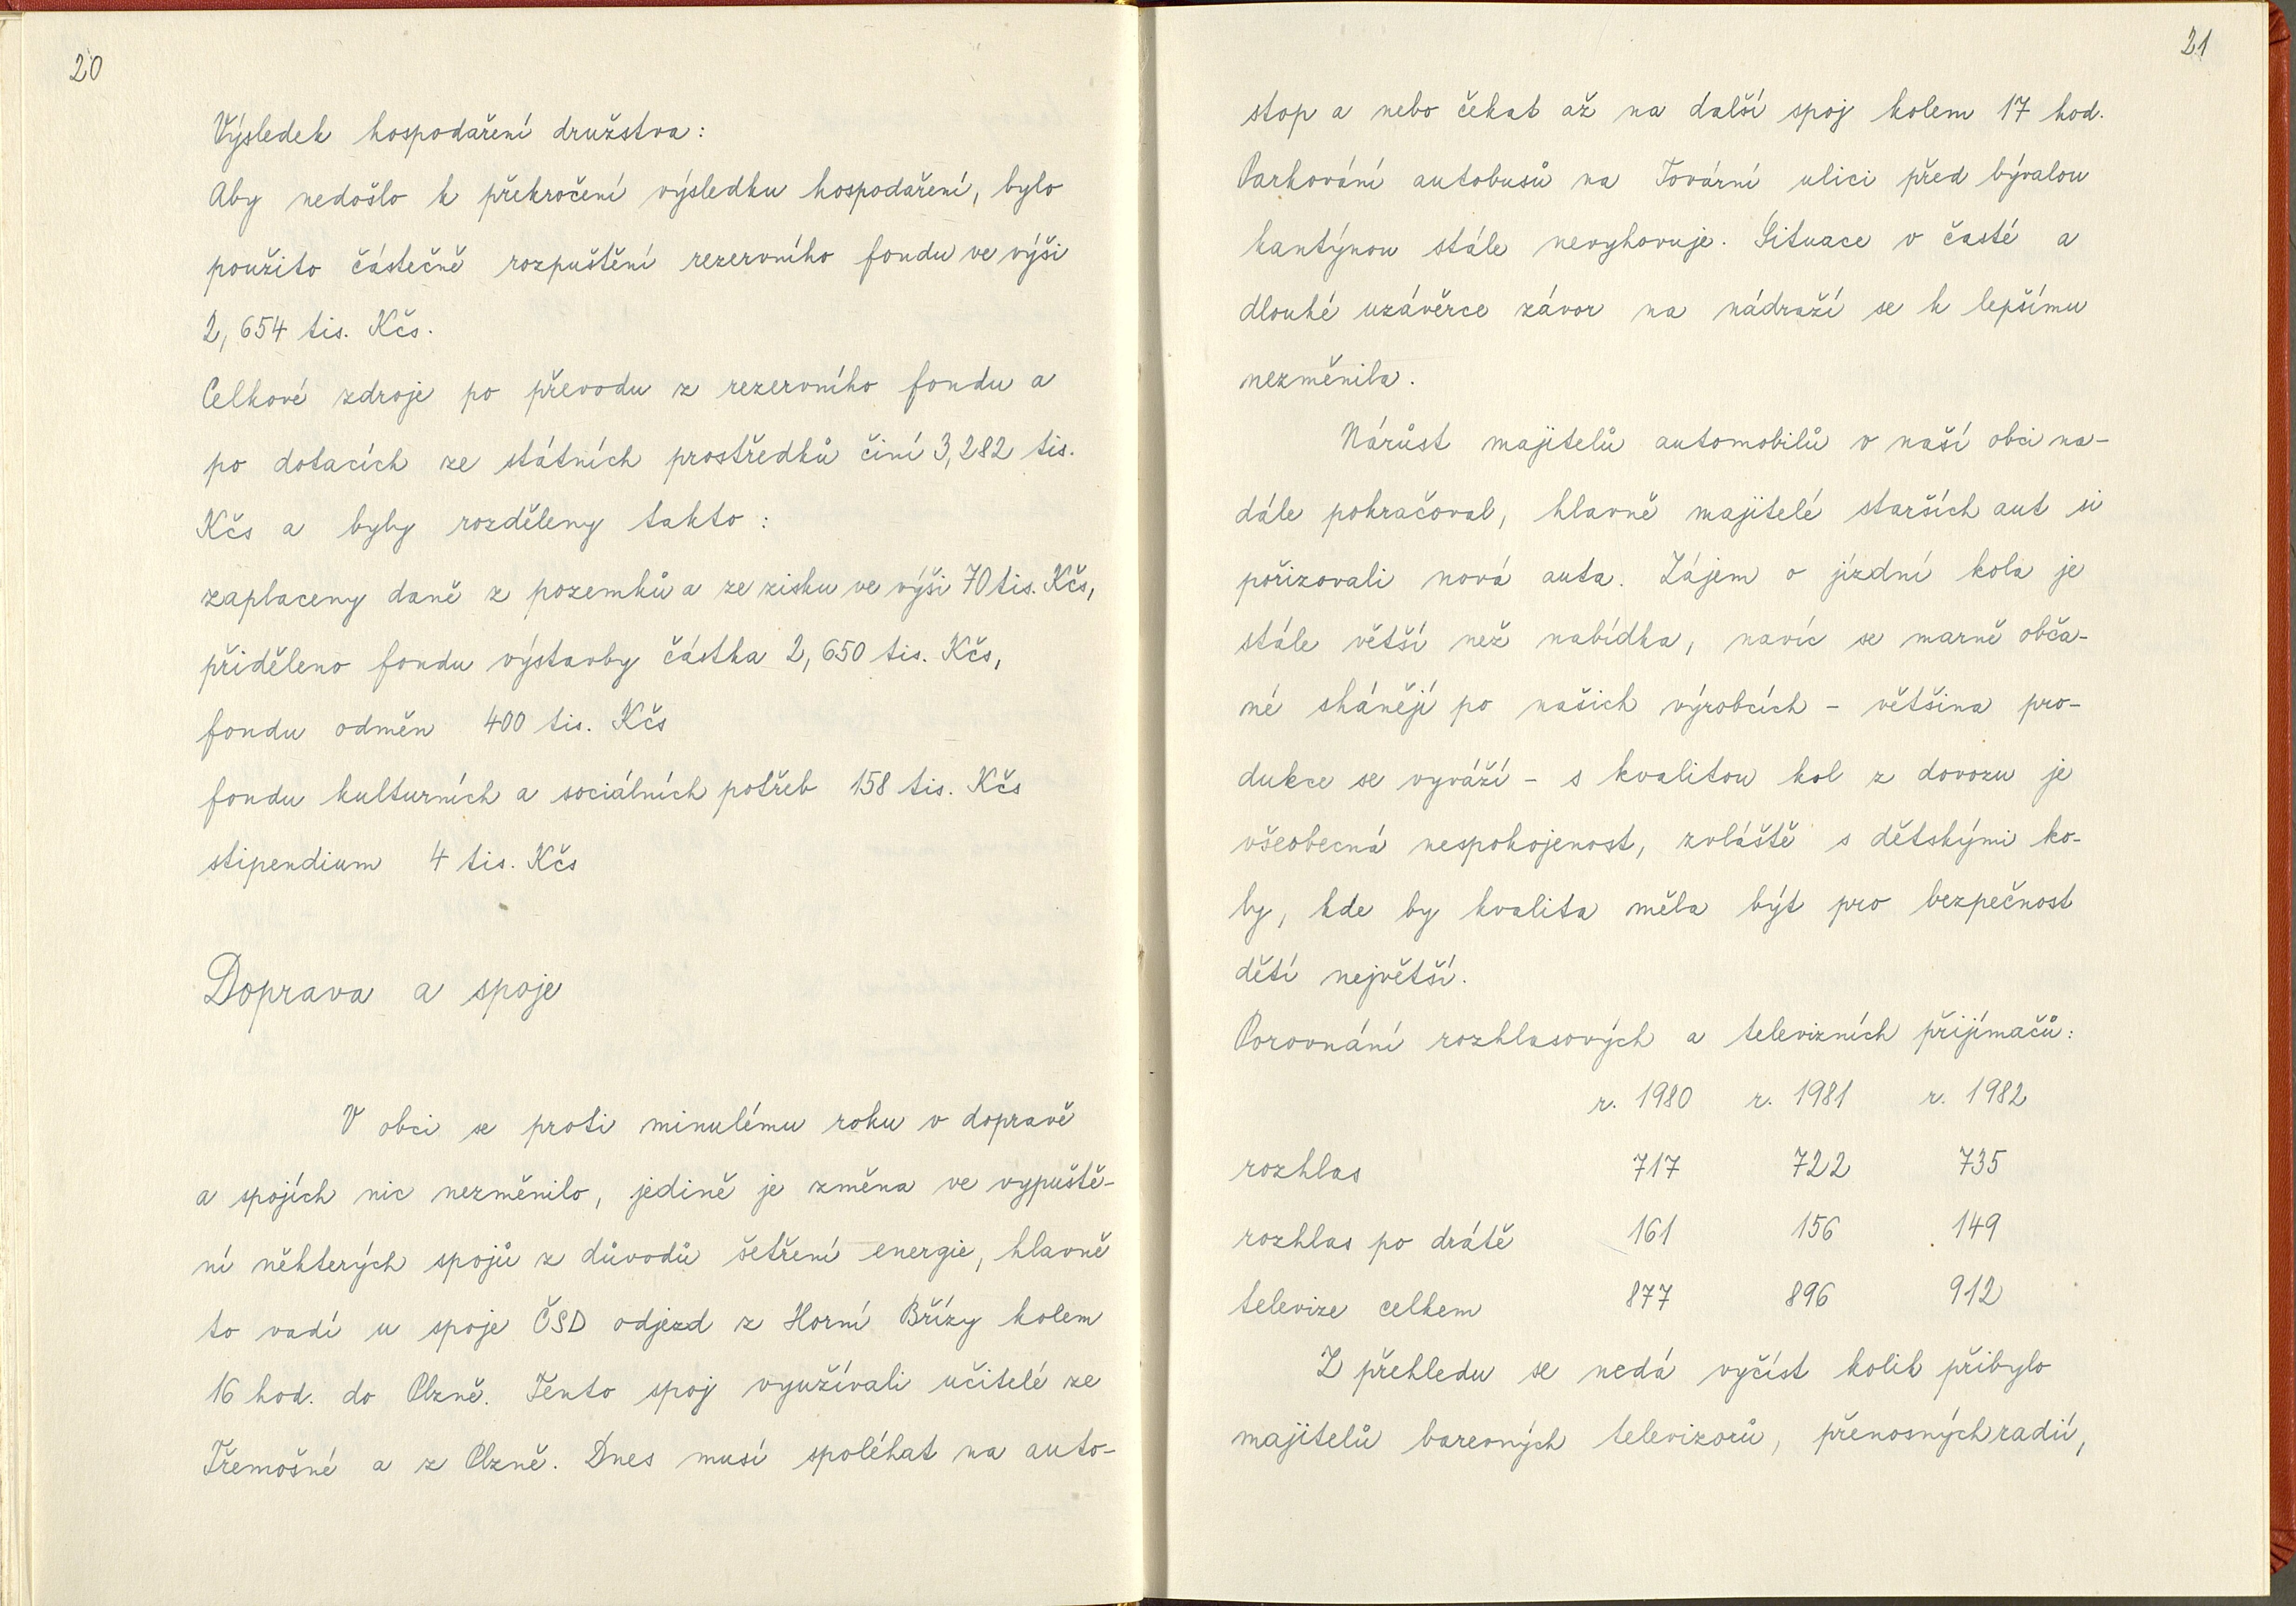 20
Výsledek hospodaření družstva:
Aby nedošlo k překročení výsledku hospodaření, bylo
použito částečně rozpuštění rezervního fondu ve výši
2,654 tis. Kčs.
Celkové zdroje po převodu z rezervního fondu a
po dotacích ze státních prostředků činí 3,282 tis.
Kčs a byly rozděleny takto:
zaplaceny daně z pozemků a ze zisku ve výši 70 tis. Kčs,
přiděleno fondu výstavby částka 2,650 tis. Kčs,
fondu odměn 400 tis. Kčs
fondu kulturních a sociálních potřeb 158 tis. Kčs
stipendium 4 tis. Kčs
Doprava a spoje
V obci se proti minulému roku v dopravě
a spojích nic nezměnilo, jedině je změna ve vypuště-
ní některých spojů z důvodů šetření energie, hlavně
to vadí u spoje ČSD odjezd z Horní Břízy kolem
16 hod. do Plzně. Tento spoj využívali učitelé ze
Třemošné a z Plzně. Dnes musí spoléhat na auto-
21
stop a nebo čekat až na další spoj kolem 17 hod.
Parkování autobusů na Tovární ulici před bývalou
kantýnou stále nevyhovuje. Situace v časté a
dlouhé uzávěrce závor na nádraží se k lepšímu
nezměnila.
Nárůst majitelů automobilů v naší obci na-
dále pokračoval, hlavně majitelé starších aut si
pořizovali nová auta. Zájem o jízdní kola je
stále větší než nabídka, navíc se marně obča-
né shánějí po našich výrobcích - většina pro-
dukce se vyváží - s kvalitou kol z dovozu je
všeobecná nespokojenost, zvláště s dětskými ko-
ly, kde by kvalita měla být pro bezpečnost
dětí největší.
Porovnání rozhlasových a televizních přijímačů:
r. 1980 r. 1981 r. 1982
rozhlas 717 722 735
rozhlas po drátě 161 156 149
televize celkem 877 896 912
Z přehledu se nedá vyčíst kolik přibylo
majitelů barevných televizorů, přenosných radií,